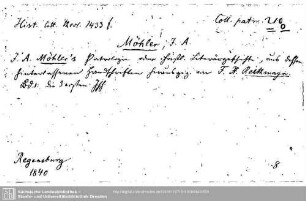 Hist. litt. Med. 1433 f.
Cod. patr. 210
Möhler, J. A.
J. A. Möhler's Patrologie oder christl. Literärgeschichte, aus dessen
hinterlassenen Handschriften herausgeg. von F. X. Reithmayr
Bd. 1. die 3 ersten
Regensburg
1840
8
Sächsische Landesbibliothek -
Staats- und Universitätsbibliothek Dresden